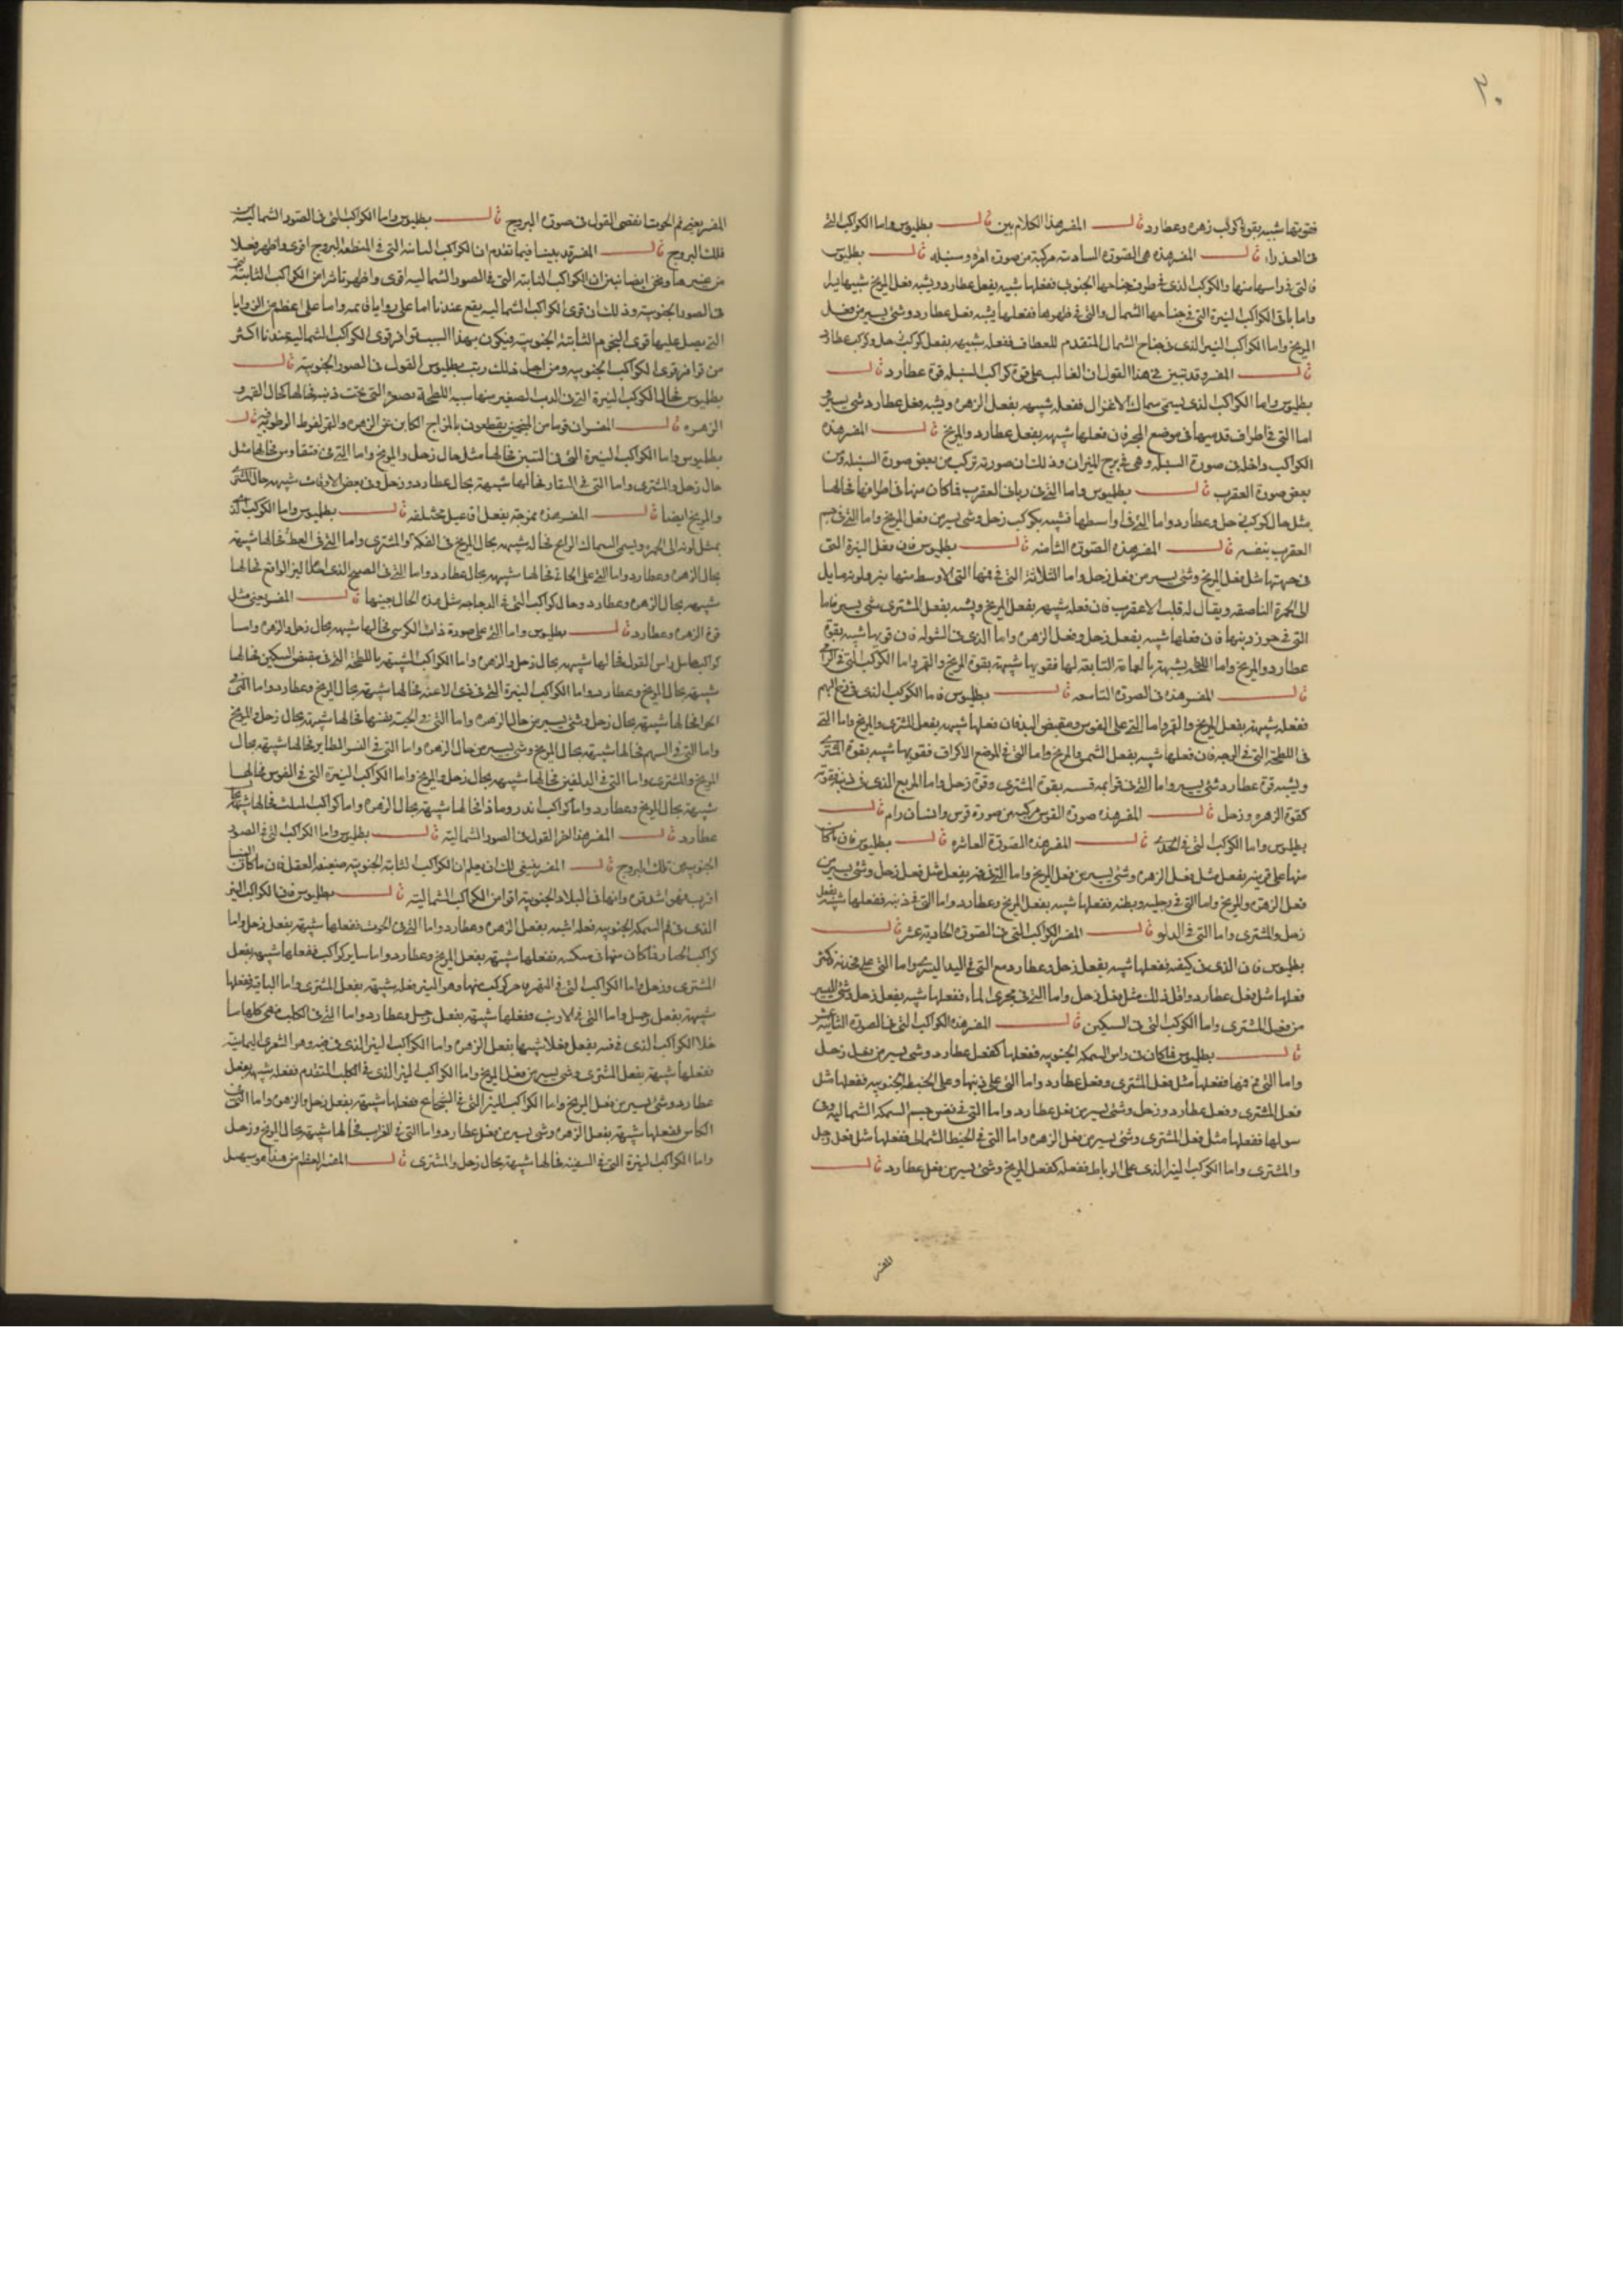 ٣٠
فقوتها شبيه بقوة كوكب زهره وعطارد قال المفسر هذا الكلام بين قال بطليوس واما الكواكب التى
فى العذراء قال المفسر هذه هى الصوره السادسه مركبة من صورة امراه وسنبله قال بطليوس
فالتى فى راسها منها والكوكب الذى فى طرف جناحها الجنوبى ففعلها شبيه بفعل عطارد ويشبه فعل المريخ شبيها
واما باقى الكواكب النيرة التى فى جناحها الشمال والتى فى ظهورها ففعلها يشبه بفعل عطارد وشئ يسير من فعل
المريخ واما الكواكب النير الذى فى جناح الشمال المتقدم للعطاف ففعله شبيه بفعل كوكب زحل وكوكب عطارد
قال المفسر وقد تبين فى هذا القول ان الغالب على قوة كواكب السنبله قوة عطارد قال
بطليوس واما الكواكب الذى يسمى سماك الاعزال ففعله شبيهه بفعل الزهره ويشبه فعل عطارد شئ يسير
اما التى فى اطراف قدميها فى موضع المجر فان فعلها شبيه بفعل عطارد والمريخ قال المفسر هذه
الكواكب داخله فى صورة السنبله وهى فى برج الميزان وذلك ان صورته تركب من بعض صورة السنبله ومن
بعض صورة العقرب قال بطليوس واما التى فى ربانى العقرب فما كان منها فى اطرافها فحالها
مثل حال كوكبى زحل وعطارد واما التى فى اواسطها فشبيه بكوكب زحل وشئ يسير من فعل المريخ واما التى فى جسم
العقرب بنفسه قال المفسر هذه الصوره الثامنه قال بطليوس فان فعل النيرة التى
فى جبهتها مثل فعل المريخ وشئ يسير من فعل زحل واما الثلاثة التى فى فمها التى الاوسط منها نير ولونه مايل
الى الحمرة الناصعه ويقال له قلب العقرب فان فعله شبيهه بفعل المريخ ويشبه بفعل المشترى شئ يسير فاما
التى فى خرزه ذنبها فان فعلها شبيه بفعل زحل وفعل الزهره واما الذى فى الشوله فان قوتها شبيه بقوة
عطارد والمريخ واما اللطخه يشبهه بالغمامه التابعه لها فقوتها شبيهة بقوة المريخ والقمر واما الكوكب التى فى الرامى
قال المفسر هذه فى الصوره التاسعه قال بطليوس فاما الكوكب الذى فى زج السهم
ففعله شبيهه بفعل المريخ والقمر واما التى على القوس ومقبض اليد فان فعلها شبيهه بفعل المشترى والمريخ واما التى
فى اللطخة التى فى الوجه فان فعلها شبيه بفعل الشمس والمريخ واما التى فى الموضع الاكراف فقوتها شبيه بقوة المشترى
ويشبه قوة عطارد شئ يسير واما التى فى قوايمه فسه بقوة المشترى وقوة زحل واما المربع الذى فى ذنبه فقوته
كقوة الزهره وزحل قال المفسر هذه صورة القوس مركبه من صورة قوس وانسان رام قال
بطليوس واما الكواكب التى فى الجدى قال المفسر هذه الصورة العاشره قال بطليوس فان ما كان
منها على قرينه بفعل مثل فعل الزهره وشئ يسير من فعل المريخ واما التى فى فمه بفعل مثل فعل زحل وشئ يسير من
فعل الزهره والمريخ واما التى فى رجليه وبطنه ففعلها شبيه بفعل المريخ وعطارد واما التى فى ذنبه ففعلها شبيه بفعل
زحل والمشترى واما التى فى الدلو قال المفسر الكواكب التى فى الصورة الحاديه عشر قال
بطليوس فان الذى فى كتفه ففعلها شبيه بفعل زحل وعطارد مع التى فى اليد اليسرى واما التى على فخذيه فكثر
فعلها مثل فعل عطارد واقل ذلك مثل فعل زحل واما التى فى مجرى الماء ففعلها شبيه بفعل زحل وشئ اليسير
من فعل المشترى واما الكوكب التى فى السمكين قال المفسر هذه الكواكب التى فى الصورة الثانية عشر
قال بطليوس فما كان فى راس السمكه الجنوبيه ففعلها كفعل عطارد وشئ يسير من فعل زحل
واما التى فى فمها ففعلها مثل فعل المشترى وفعل عطارد واما التى على ذنبها وعلى الخيط الجنوبيه ففعلها مثل
فعل المشترى وفعل عطارد وزحل وشئ يسير من فعل عطارد واما التى فى نفس جسم السمكه الشماليه وفى
سولها ففعلها مثل فعل المشترى وشئ يسير من فعل الزهره واما التى فى الخيط الشمالى ففعلها مثل فعل زحل
والمشترى واما الكوكب النير الذى على الرباط ففعله كفعل المريخ وشئ يسير من فعل عطارد قال
المفسر
المفسر يعنى فم الحوت انقضى القول فى صورة البروج قال بطليوس واما الكواكب التى فى الصور الشماليه من
فلك البروج قال المفسر قد بينا فيما تقدم ان الكواكب الثابته التى فى المنطقه البروج اقوى واظهر فعلا
من غيرها ونحن ايضا نبين ان الكواكب الثابته التى فى الصور الشماليه اقوى واظهر تاثيرا من الكواكب الثابتة التى
فى الصور الجنوبيه وذلك ان قوى الكواكب الشماليه يقع عندنا اما على زوايا قائمه واما على اعظم من الزوايا
التى يصل عليها قوى النجوم الثابتة الجنوبيه فيكون بهذا السبب توافر قوى الكواكب الشماليه عندنا اكثر
من توافر قوى الكواكب الجنوبيه ومن اجل ذلك رتب بطليوس القول فى الصور الجنوبية قال
بطليوس فحال الكوكب النيرة التى فى الدب الصغير
الزهره قال المفسر ان قوما من المنجمين يقطعون بالمزاج الكاين عن الزهره والقمر لفرط الرطوبيه قال
بطليوس واما الكواكب النيرة التى فى التنين فحالها مثل حال زحل والمريخ واما التى فى قيقاوس فحالها مثل
حال زحل والمشترى واما التى فى البقار فحالها شبيهة بحال عطارد وزحل وفى بعض الاوقات شبيه بحال المشترى
والمريخ ايضا قال المفسر هذه ممزوجة بفعل افاعيل مختلفه قال بطليوس واما الكوكب الذى
يميل لونه الى الحمره ويسمى السماك الرامح فحاله شبيهه بحال المريخ فى الفكه والمشترى واما التى فى
بحال الزهره وعطارد واما التى على الجاثى فحالها شبيهه بحال عطارد واما التى فى الصبح الذى النسر الواقع فحالها
شبيهه بحال الزهره وعطارد وحال كواكب التى فى الدجاجه مثل هذه الحال بعينها قال المفسر يعنى مثل
قوة الزهره وعطارد قال بطليوس واما التى على صورة ذات الكرسى فحالها شبيهه بحال زحل والزهره واما
كواكب حامل راس الغول فحالها شبيهه بحال زحل والزهره واما الكواكب الشبيهه باللطخة التى فى مقبض السكين فحالها
شبيهه بحال المريخ وعطارد واما الكواكب النيرة التى فى ذى الاعنه فحالها شبيهه بحال المريخ وعطارد واما التى فى
الحوا فحالها شبيهه بحال زحل وشئ يسير من حال الزهره واما التى فى الحية بنفسها فحالها شبيهه بحال زحل والمريخ
واما التى فى السهم فحالها شبيهه بحال المريخ وشئ يسير من حال الزهره واما التى فى النسر الطاير فحالها شبيهه بحال
المريخ والمشترى واما التى فى الدلفين فحالها شبيهه بحال زحل والمريخ واما الكواكب النيرة التى فى الفرس فحالها
شبيهه بحال المريخ وعطارد واما كواكب اندروماذا فحالها شبيهه بحال الزهره واما كواكب المثلث فحالها شبيه بحال
عطارد قال المفسر هذا اخر القول فى الصور الشمالية قال بطليوس واما الكواكب التى فى الصور
الجنوبيه من فلك البروج قال المفسر ينبغى لك ان يعلم ان الكواكب الثابته الجنوبيه ضعيفه الفعل فان ما كان الينا
اقرب فهو اشد قوه وانها فى البلاد الجنوبية اقوا من الكواكب الشمالية قال بطليوس فان الكواكب النير
الذى فى فم السمكه الجنوبيه فعله شبيه بفعل الزهره وعطارد واما التى فى الحوت ففعلها شبيهه بفعل زحل واما
كواكب الجبار فما كان منها فى منكبيه ففعلها شبيهه بفعل المريخ وعطارد واما ساير كواكبه ففعلها شبيهه بفعل
المشترى وزحل واما الكواكب التى فى النهر فاخر كوكب منها وهو النير فعله شبيهه بفعل المشترى واما الباقية ففعلها
شبيهه بفعل زحل واما التى فى الارنب ففعلها شبيهه بفعل زحل وعطارد واما التى فى الكلب فهى كلها ما
خلا الكواكب الذى فى فمه يفعل فعلا شبيها بفعل الزهره واما الكواكب النير الذى فى فمه وهو الشعرى اليمانيه
ففعلها شبيهه بفعل المشترى وشئ يسير من فعل المريخ واما الكواكب النير الذى فى الكلب المتقدم ففعله شبيهه بفعل
عطارد وشئ يسير من فعل المريخ واما الكواكب النير التى فى الشجاع ففعلها شبيهه بفعل زحل والزهره واما التى فى
الكاس ففعلها شبيهه بفعل الزهره وشئ يسير من فعل عطارد واما التى فى الغراب فحالها شبيهه بحال المريخ وزحل
واما الكواكب النيرة التى فى السفينه فحالها شبيهه بحال زحل والمشترى قال المفسر العظم من هذا هو سهيل